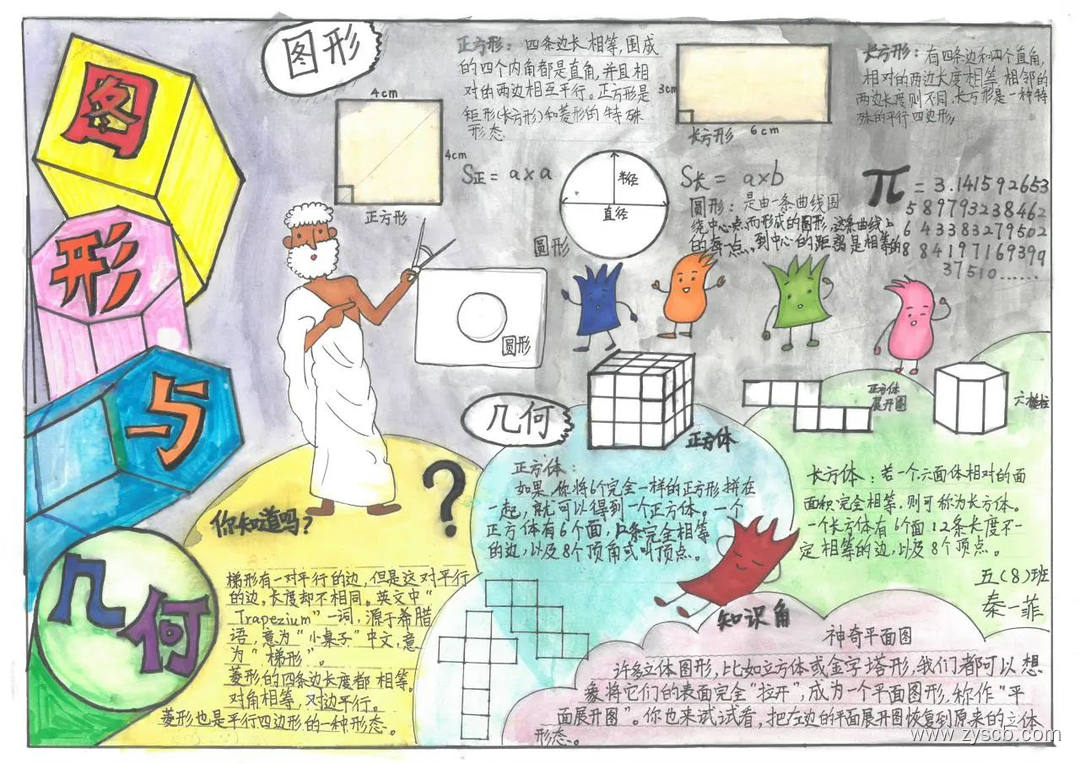 图
形
与
几
何
图形
正方形：四条边长相等，围成
的四个内角都是直角，并且相
对的两边相互平行。正方形是
矩形(长方形)和菱形的特殊
形态
4cm
4cm
正方形
S正= a×a
3cm
6cm
长方形
S长= a×b
长方形：有四条边和四个直角，
相对的两边长度相等，相邻的
两边长度则不同，长方形是一种特
殊的平行四边形。
半径
直径
圆形
圆形：是由一条曲线围
绕中心点而形成的圆形，这条曲线上
的每一点，到中心的距离是相等的
π = 3.141592653
589793238462
6 43383279502
8 841971693991
37510……
圆形
几何
正方体
正方体
展开图
六棱柱
正方体：
如果你将6个完全一样的正方形拼在
一起，就可以得到一个正方体。一个
正方体有6个面，12条完全相等
的边，以及8个顶角或叫顶点。
长方体：若一个六面体相对的面
面积完全相等，则可称为长方体。
一个长方体有6个面12条长度不一
定相等的边，以及8个顶点。
五(8)班
秦一菲
?
你知道吗?
梯形有一对平行的边，但是这对平行
的边，长度却不相同。英文中“
Trapezium”一词，源于希腊
语，意为“小桌子”中文，意
为“梯形”。
菱形的四条边长度都相等。
对角相等，对边平行。
菱形也是平行四边形的一种形态。
知识角
神奇平面图
许多立体图形，比如立方体或金字塔形，我们都可以想
象将它们的表面完全“拉开”，成为一个平面图形，称作“平
面展开图”。你也来试试看，把左边的平面展开图恢复到原来的立体
形态。
www.zyscb.com